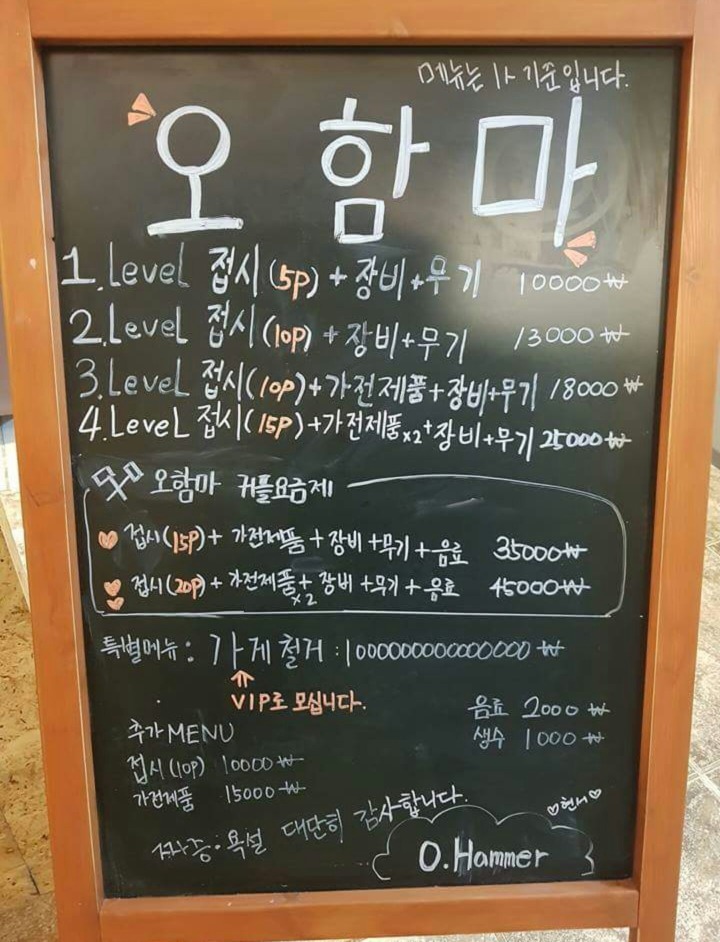 메뉴는 1人 기준입니다.
오 함 마
1. Level 접시(5P) + 장비 + 무기 10000₩
2. Level 접시(10P) + 장비+무기 13000₩
3. Level 접시(10P)+가전제품+장비+무기 18000₩
4. LeveL 접시(15P)+가전제품x2+장비+무기 25000₩
오함마 커플요금제
접시(15P)+ 가전제품 + 장비 +무기 + 음료 35000₩
접시(20P)+ 가전제품x2 + 장비 +무기 + 음료 45000₩
특별메뉴: 가게 철거 : 100000000000000 ₩
VIP로 모십니다.
음료 2000 ₩
생수 1000 ₩
추가 MENU
접시(10P) 10000₩
가전제품 15000₩
욕설 대단히 감사합니다.
♡현서♡
O.Hammer